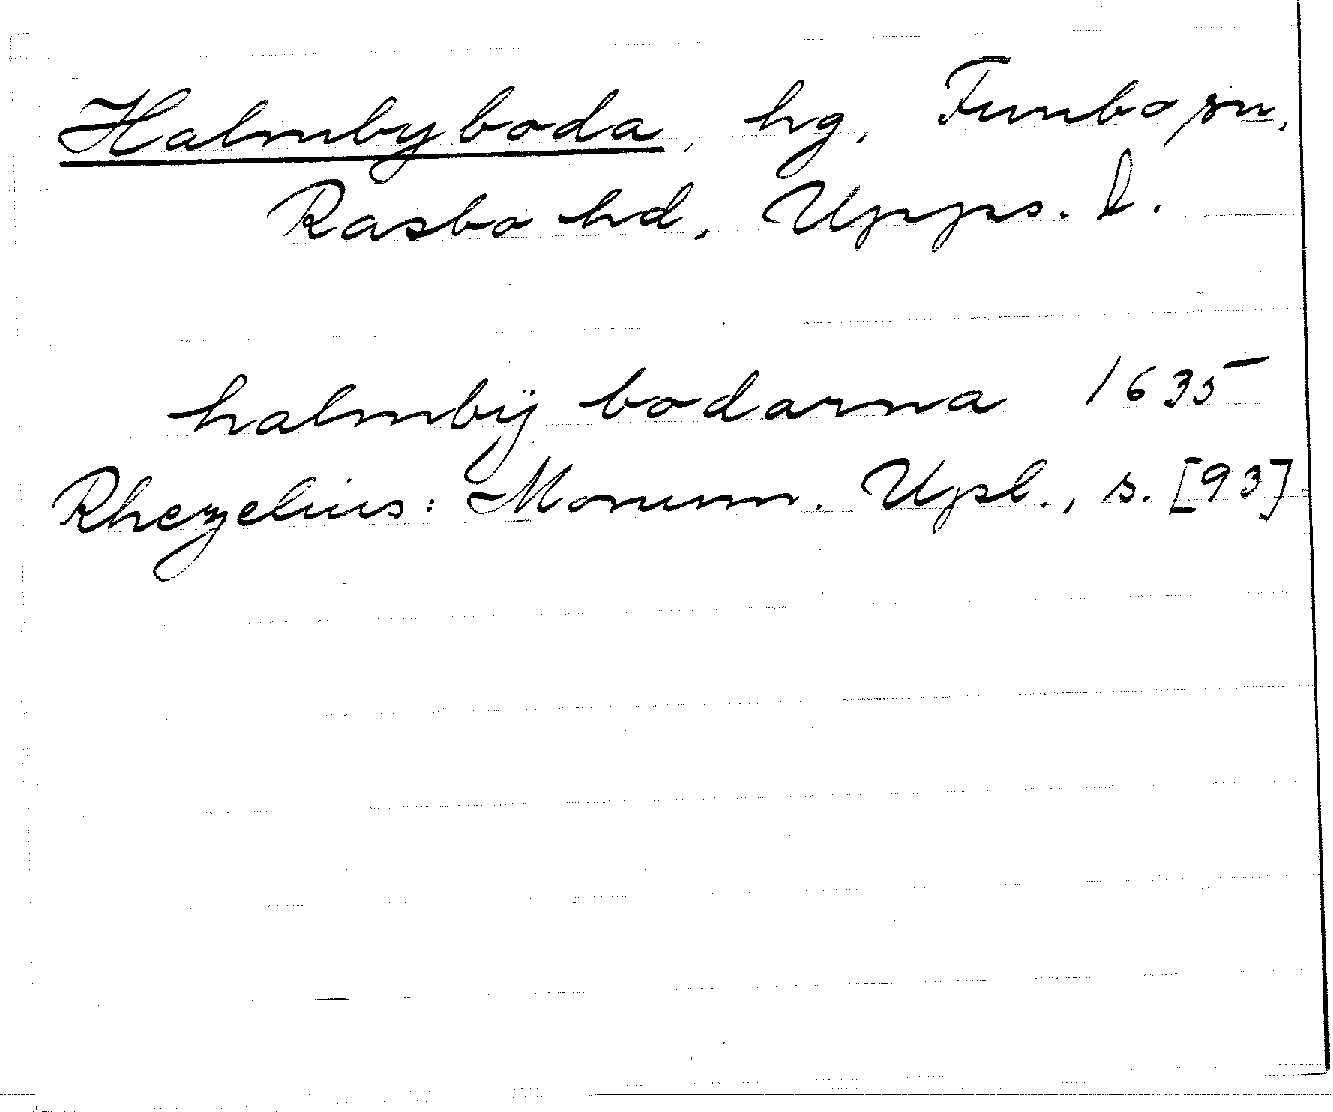 Halmbyboda, hg, Funbo sn,
Rasbo hd, Upps. l.
halmbÿ bodarna 1635
Rhezelius: Monum. Upl., s. [93]